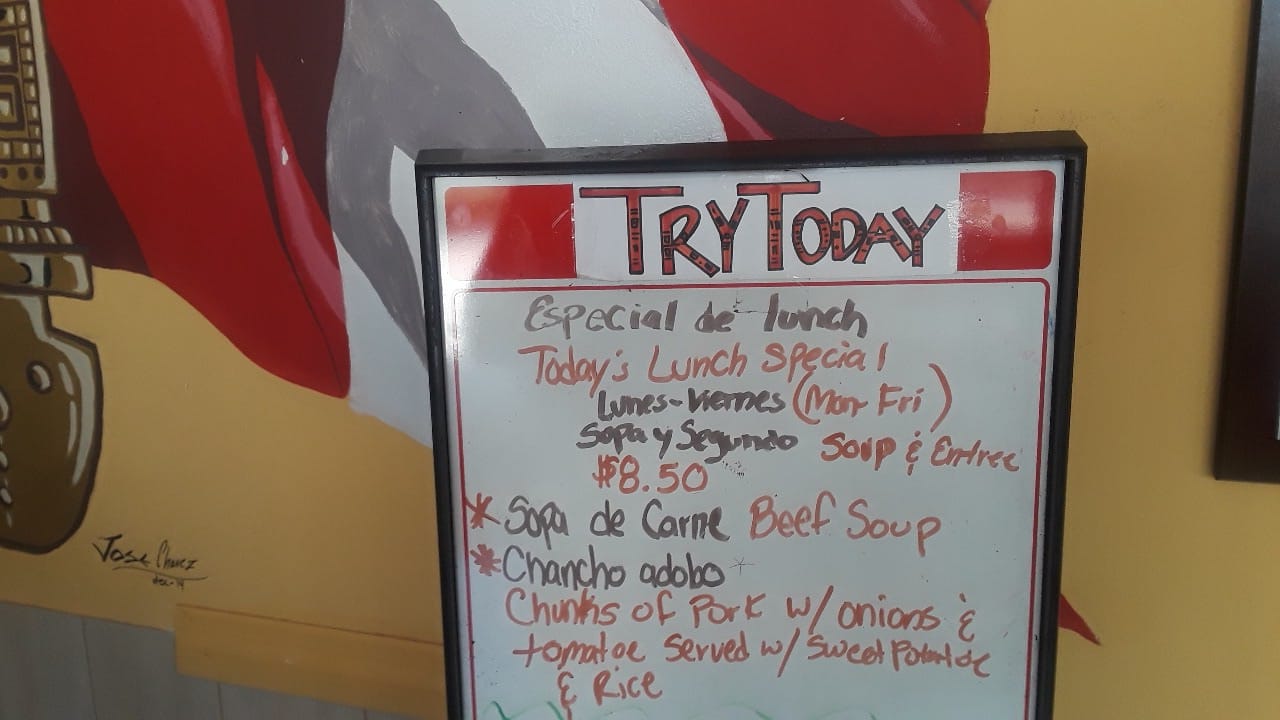 TRY TODAY
Especial de lunch
Today's Lunch Special
Lunes-Viernes (Mon-Fri)
Sopa y Segundo Soup & Entree
$8.50
* Sopa de Carne Beef Soup
* Chancho adobo *
Chunks of Pork w/ onions &
tomatoe Served w/ Sweet Potatoe
& Rice
Jose Chavez
dec-14